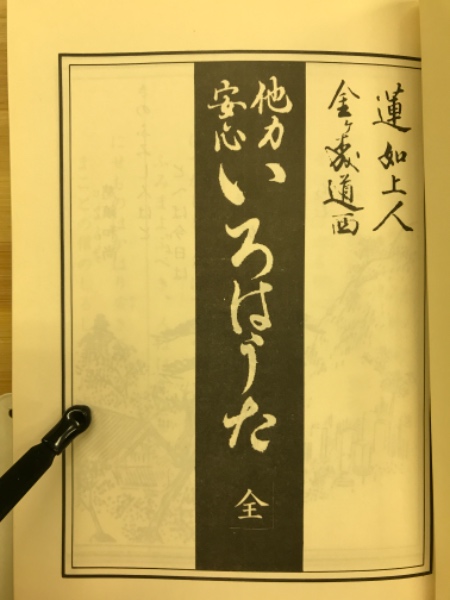 蓮如上人
金ヶ森道西
他力
安心
いろはうた
全